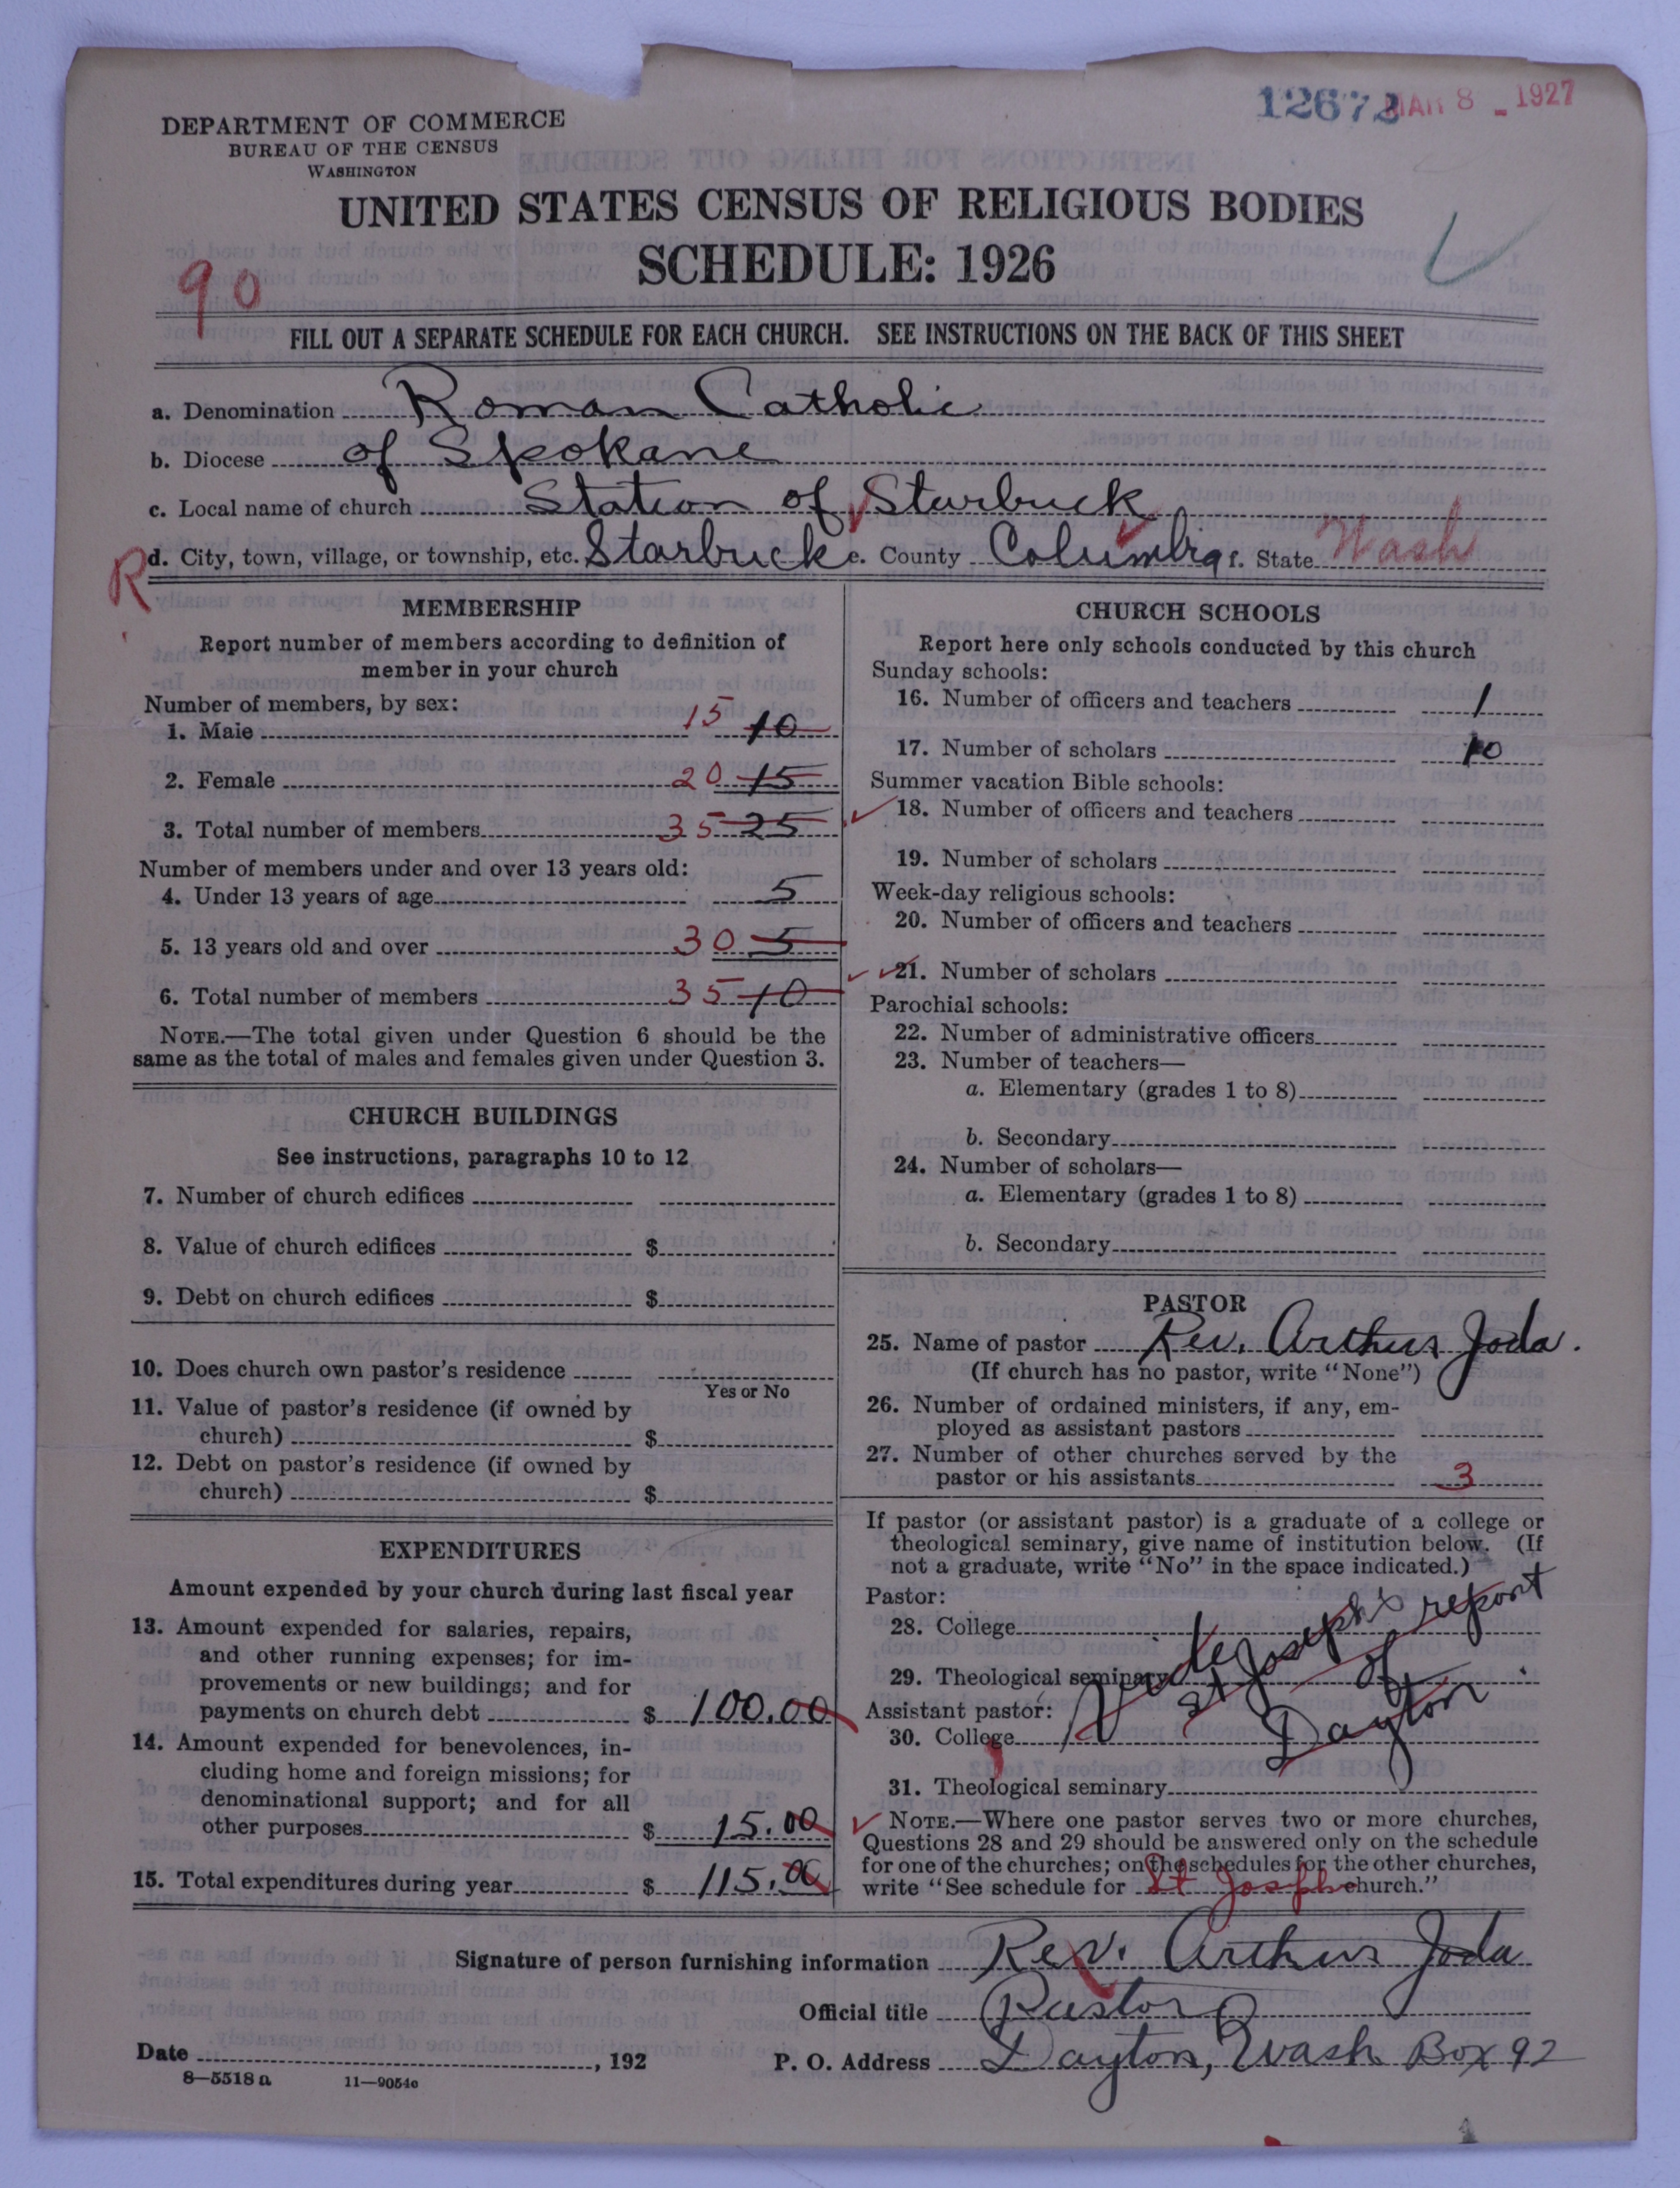 12673 MAR 8 - 1927
DEPARTMENT OF COMMERCE
BUREAU OF THE CENSUS
WASHINGTON
UNITED STATES CENSUS OF RELIGIOUS BODIES
SCHEDULE: 1926
90
FILL OUT A SEPARATE SCHEDULE FOR EACH CHURCH. SEE INSTRUCTIONS ON THE BACK OF THIS SHEET
a. Denomination Roman Catholic
b. Diocese of Spokane
c. Local name of church Station of Starbuck
R d. City, town, village, or township, etc. Starbuck e. County Columbia f. State Wash
MEMBERSHIP
Report number of members according to definition of
member in your church
Number of members, by sex:
1. Male 15 10
2. Female 20 15
3. Total number of members 35 25
Number of members under and over 13 years old:
4. Under 13 years of age 5
5. 13 years old and over 30 5
6. Total number of members 35 10
NOTE.—The total given under Question 6 should be the
same as the total of males and females given under Question 3.
CHURCH BUILDINGS
See instructions, paragraphs 10 to 12
7. Number of church edifices
8. Value of church edifices $
9. Debt on church edifices $
10. Does church own pastor's residence
Yes or No
11. Value of pastor's residence (if owned by
church) $
12. Debt on pastor's residence (if owned by
church) $
EXPENDITURES
Amount expended by your church during last fiscal year
13. Amount expended for salaries, repairs,
and other running expenses; for im-
provements or new buildings; and for
payments on church debt $ 100.00
14. Amount expended for benevolences, in-
cluding home and foreign missions; for
denominational support; and for all
other purposes $ 15.00
15. Total expenditures during year $ 115.00
CHURCH SCHOOLS
Report here only schools conducted by this church
Sunday schools:
16. Number of officers and teachers 1
17. Number of scholars 10
Summer vacation Bible schools:
18. Number of officers and teachers
19. Number of scholars
Week-day religious schools:
20. Number of officers and teachers
21. Number of scholars
Parochial schools:
22. Number of administrative officers
23. Number of teachers—
a. Elementary (grades 1 to 8)
b. Secondary
24. Number of scholars—
a. Elementary (grades 1 to 8)
b. Secondary
PASTOR
25. Name of pastor Rev. Arthur Joda.
(If church has no pastor, write "None")
26. Number of ordained ministers, if any, em-
ployed as assistant pastors
27. Number of other churches served by the
pastor or his assistants 3
If pastor (or assistant pastor) is a graduate of a college or
theological seminary, give name of institution below. (If
not a graduate, write "No" in the space indicated.)
Pastor:
28. College
29. Theological seminary
Assistant pastor:
30. College
31. Theological seminary
Vide St Joseph's report
of
Dayton
NOTE.—Where one pastor serves two or more churches,
Questions 28 and 29 should be answered only on the schedule
for one of the churches; on the schedules for the other churches,
write "See schedule for St Joseph church."
Signature of person furnishing information Rev. Arthur Joda
Official title Pastor
Date , 192 P. O. Address Dayton, Wash Box 92
8—5518a 11—9054c